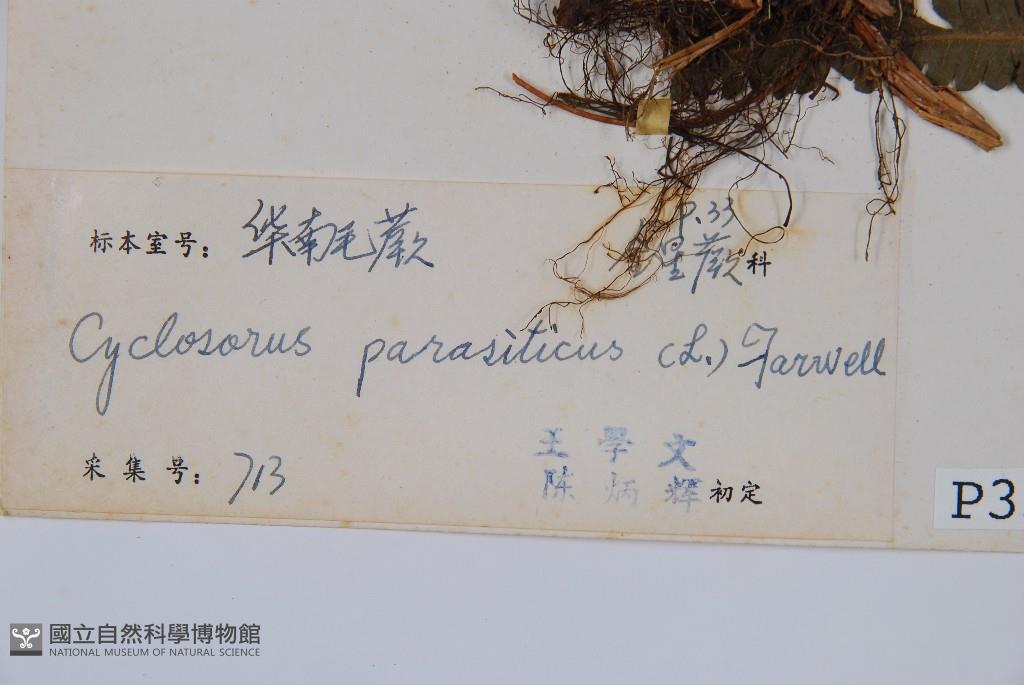 P.33
标本室号： 华南毛蕨 金星蕨科
Cyclosorus parasiticus (L.) Farwell
王學文
采集号： 713 陈炳辉 初定
P3
國立自然科學博物館
NATIONAL MUSEUM OF NATURAL SCIENCE